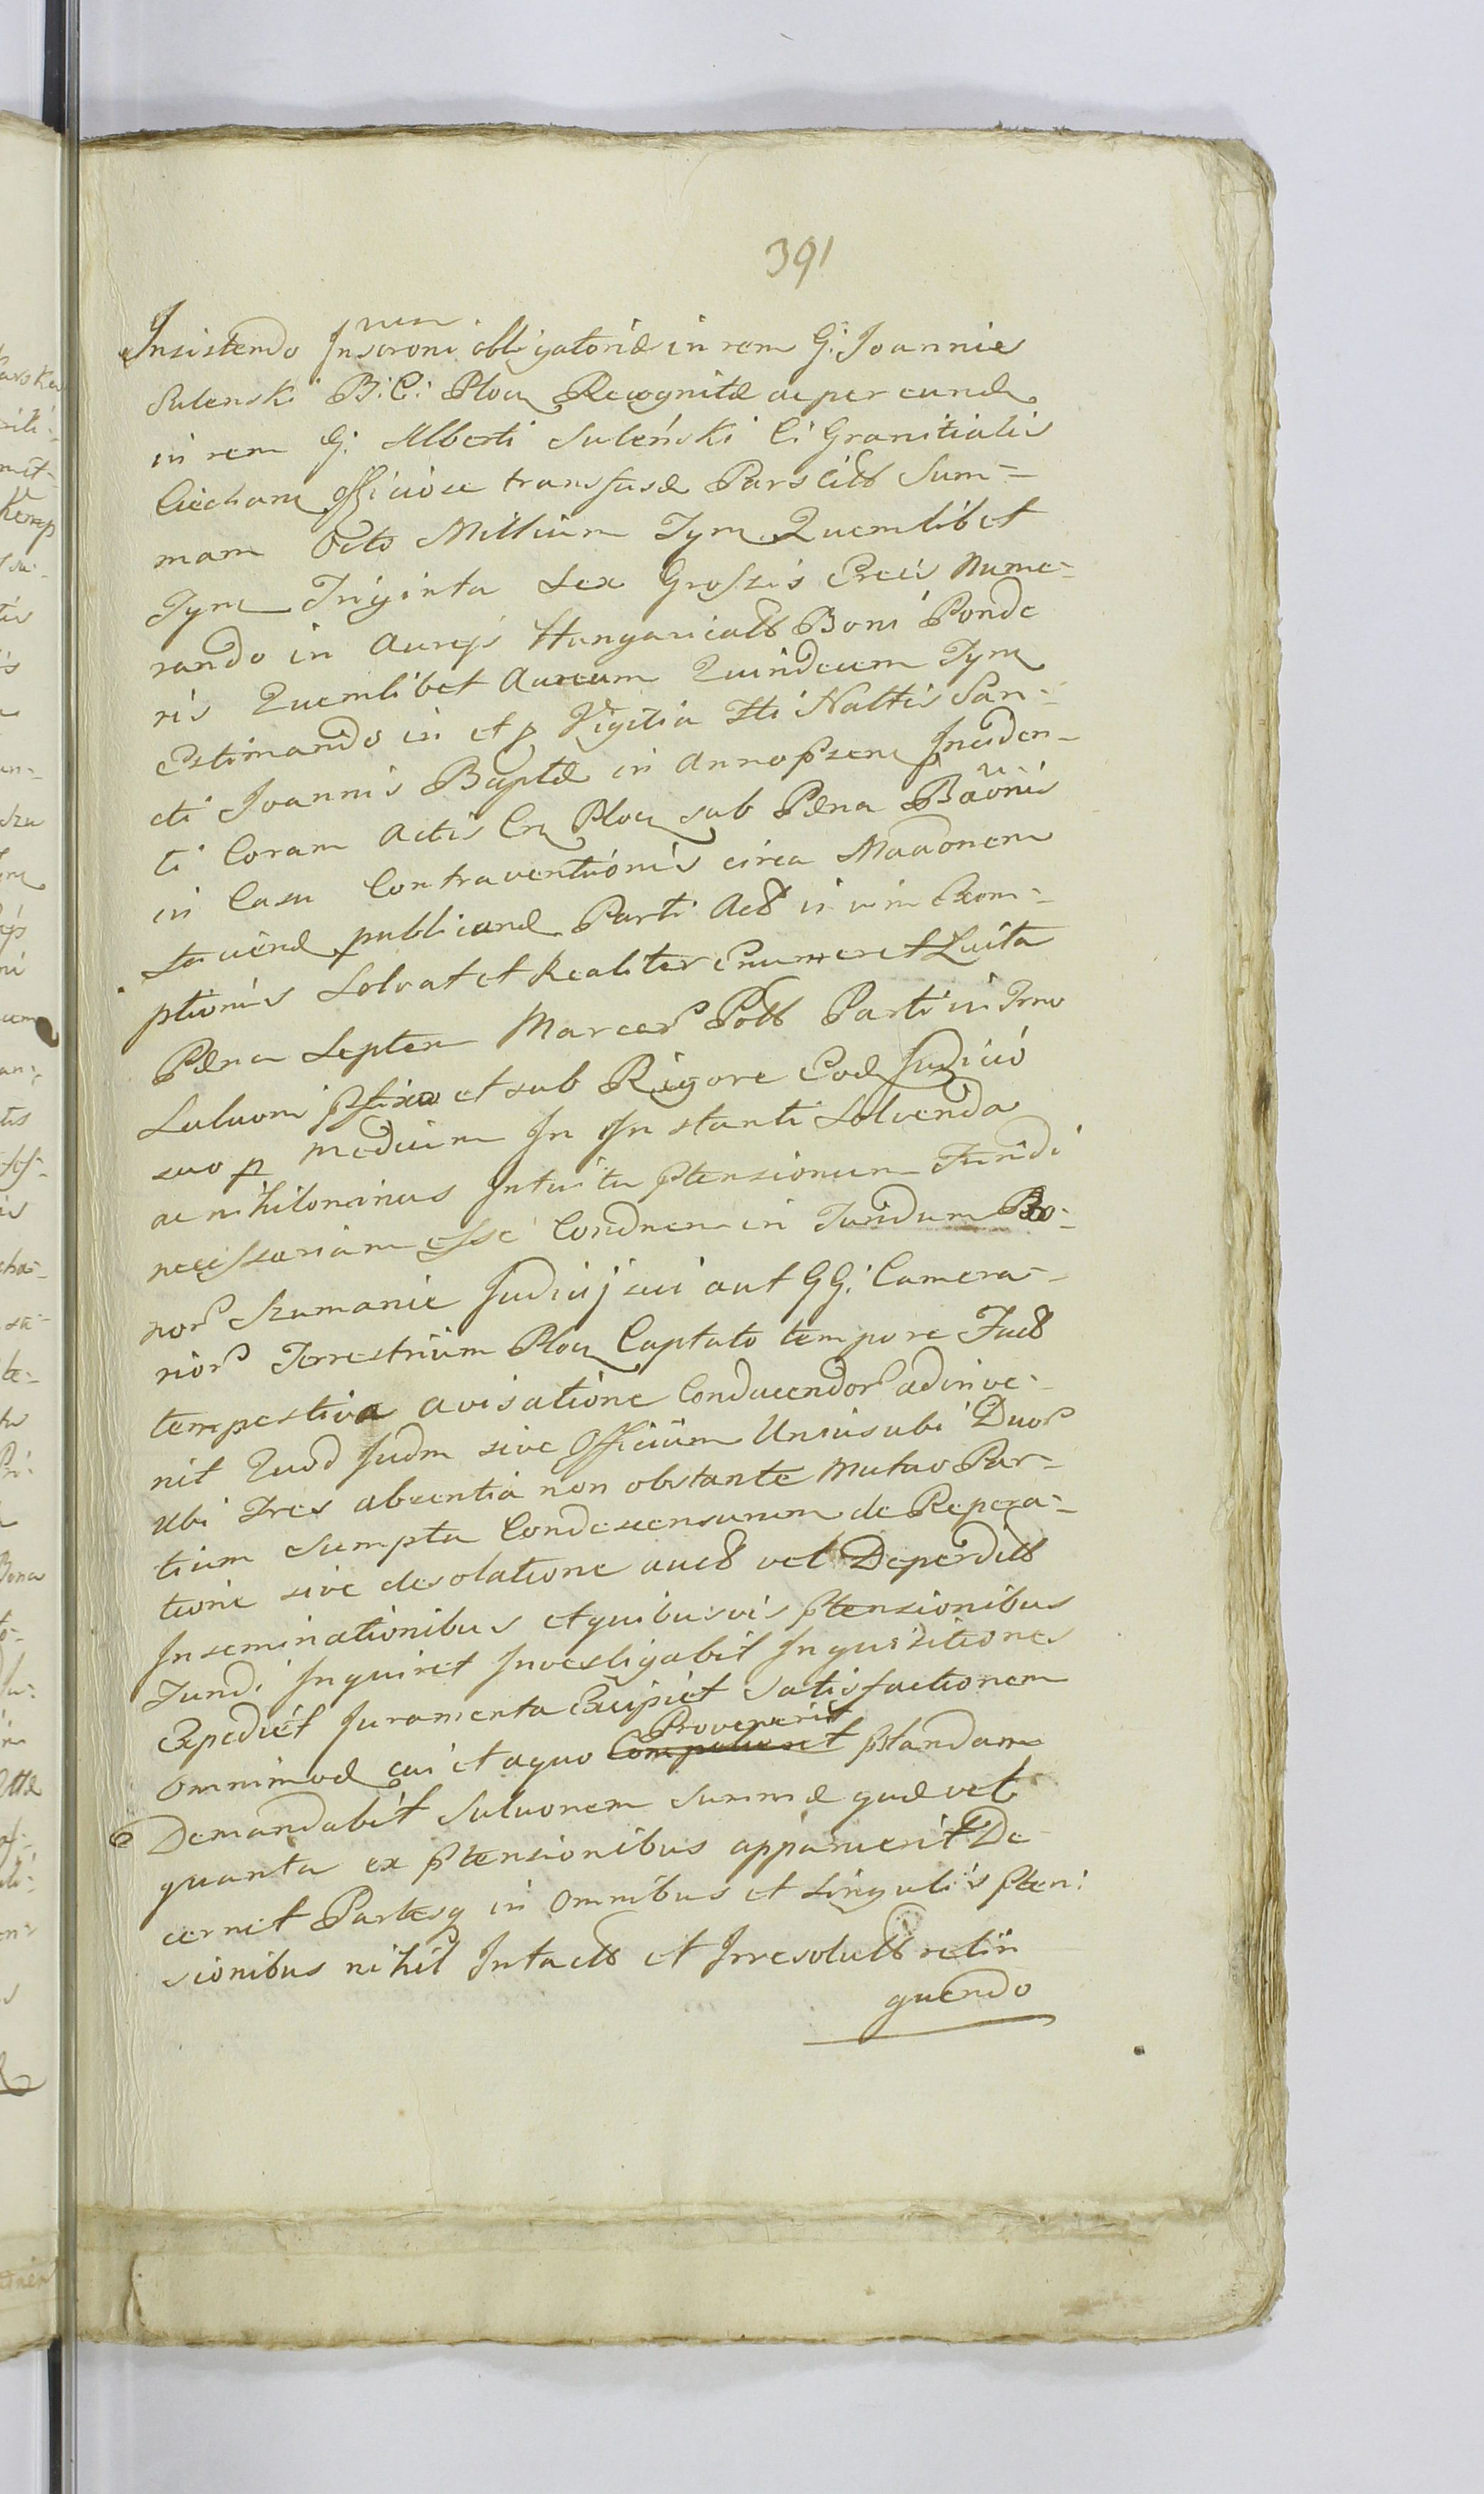 391
Insistendo Inscroni obligatoriæ in rem G: Joannis
Sulenski B: C: Ploc Recognitæ ac per eund
in rem G: Alberti Suleński C: Granitialis
Ciechan officiose transfusæ Pars Citt Sum=
mam Octo Millium Tym Quemlibet
Tym Triginta Sex Grossis Creis Nume=
rando in Aureis Hungaricatt Boni Ponde
ris Quemlibet Aureum Quindecim Tym
estimando in et p Vigilia Sti Nattis San=
cti Joannis Baptæ in Anno pszen Inciden=
ti Coram Actis Cr Ploc sub Pæna Baönis
in Casu Contraventionis circa Maäonem
publicand Parti Act in vim Exem=
ptionis Solvat et Realiter enumeret Luita
Pæna Septem Marcar Pott Parti in Trno
Soluoni pfixo et sub Rigore Eod Judicio
suo p medium In Instanti Solvenda
ac nihilominus Intuitu ptensionum Fundi
necessariam esse Condnem in Fundum Bo=
nor Szumanie Judicij sui aut GG: Camera=
rior Terrestrium Ploc Captato tempore Fact
tempestiva avisatione Conducendor adinve=
nit Quod Judm sive Officium Unius ubi Duor
Ubi Tres absentia non obstante Mutuo Par=
tium Sumptu Condescensurum de Repera=
tione sive desolatione auct vel Deperditt
Inseminationibus et quibusvis ptensionibus
Fundi Inquiret Investigabit Inquisitiones
Expediet Juramenta Excipiet Satisfactionem
Provenerit
omnimod cui et a quo ptandam
Demandabit Soluonem Summæ quæ vel
quanta ex ptensionibus apparuerit De
cernet Partesq in Omnibus et Singulis pten:
sionibus nihil Intactt et Irresolutt relin
quendo